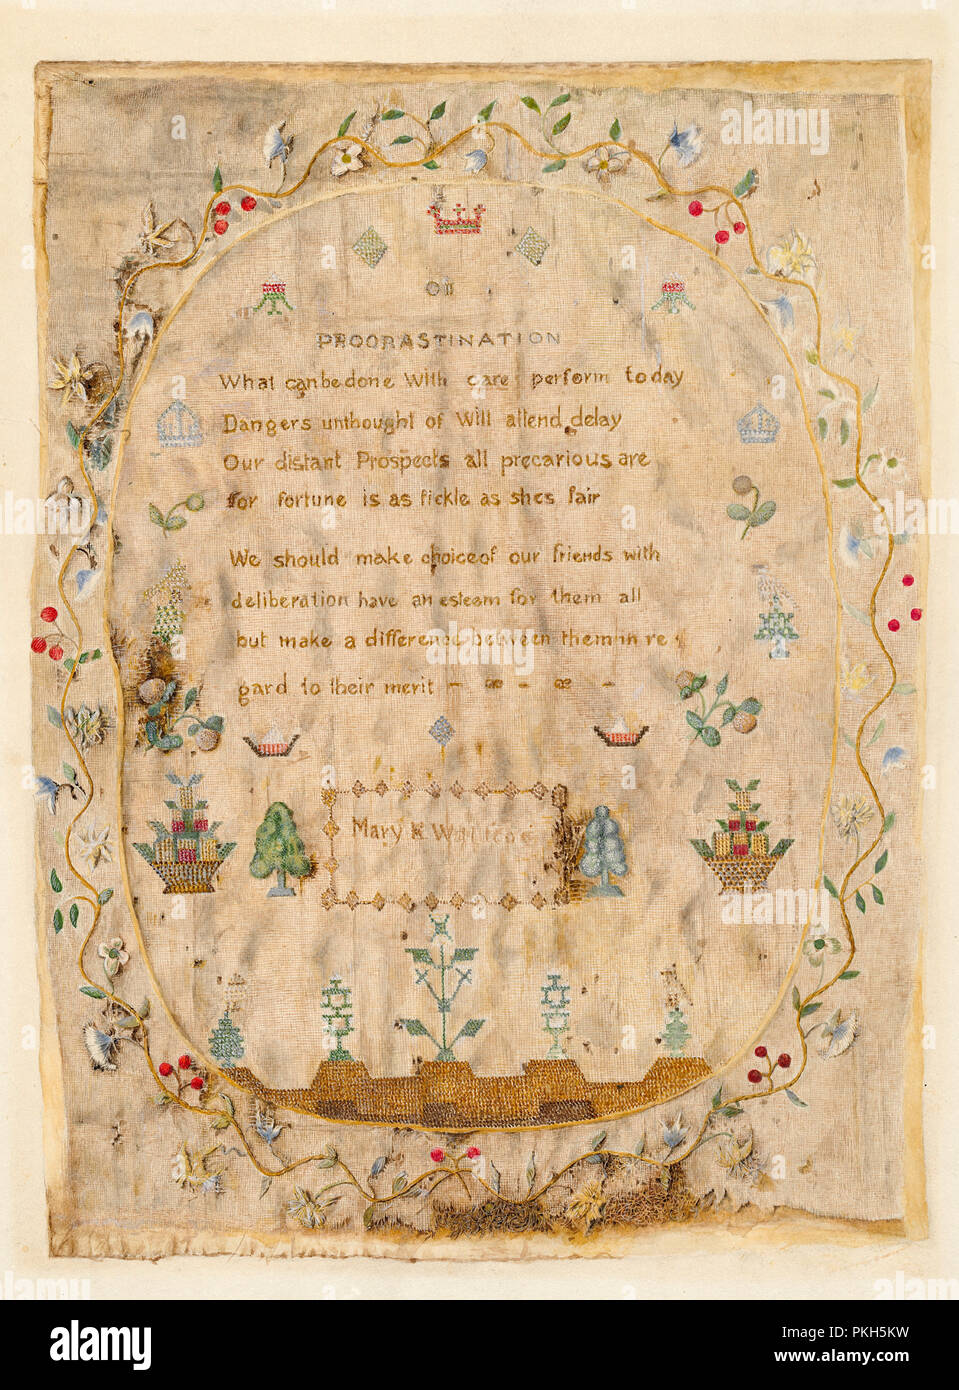 On
PROCRASTINATION
What can be done With care perform to day
Dangers unthought of Will attend delay
Our distant Prospects all precarious are
for fortune is as fickle as shes fair
We should make choice of our friends with
deliberation have an esteem for them all
but make a difference between them in re
gard to their merit
Mary K
alamy
Image ID: PKH5KW
www.alamy.com